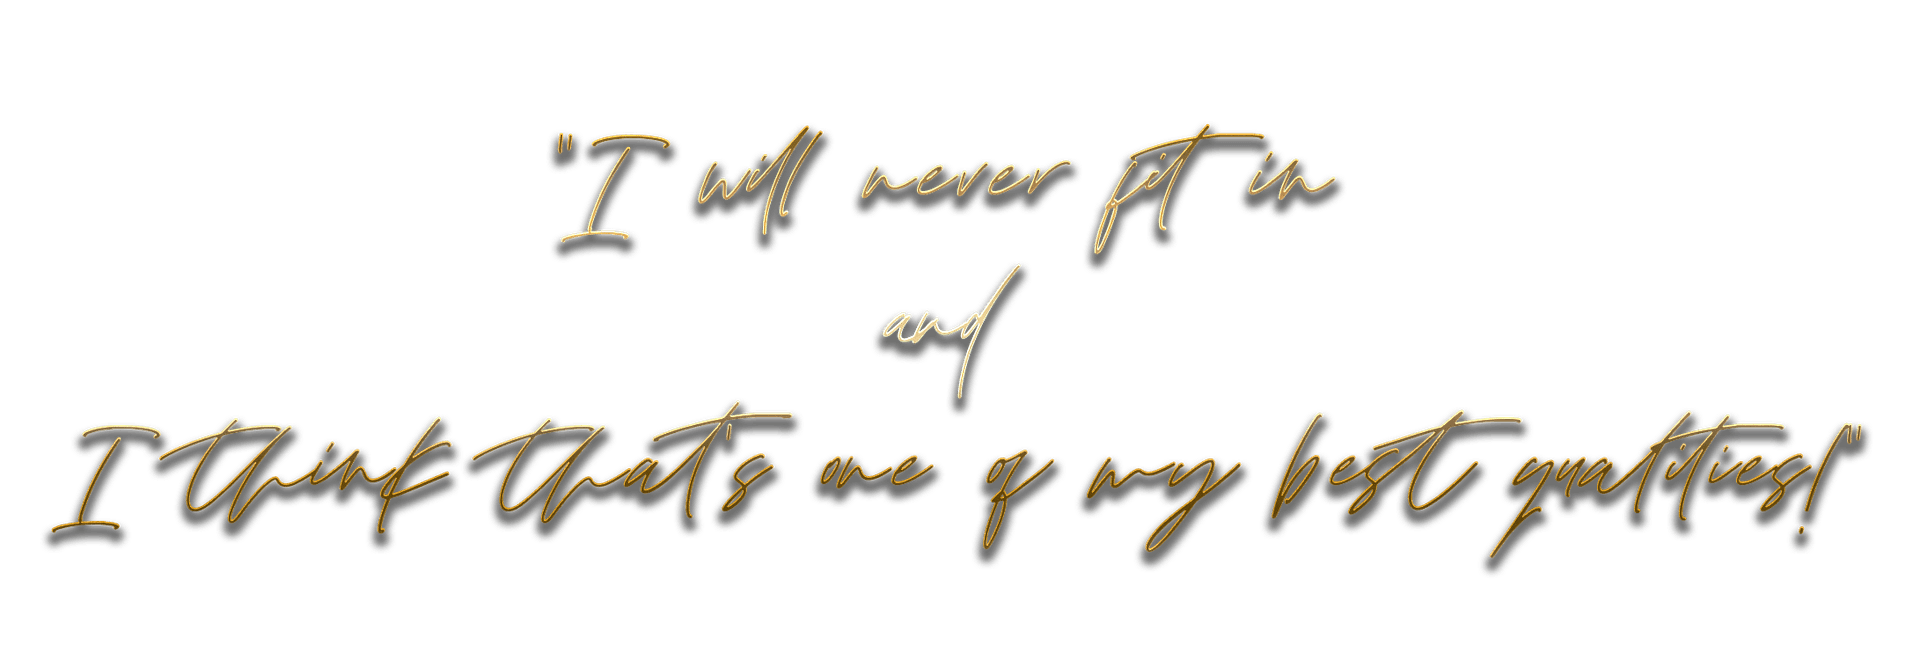 "I will never fit in
and
I think that's one of my best qualities!"